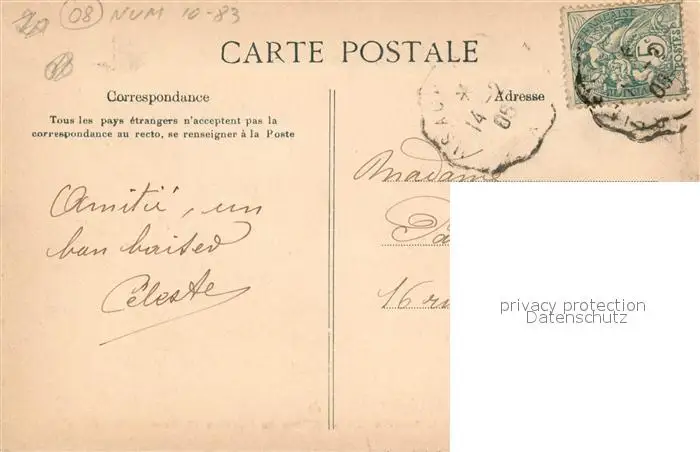 08 NUM 10-83
CARTE POSTALE
Correspondance
Tous les pays étrangers n'acceptent pas la
correspondance au recto, se renseigner à la Poste
Adresse
14
POSTES
Amitié, un
bon baiser
Céleste
Madame
16 ru
privacy protection
Datenschutz